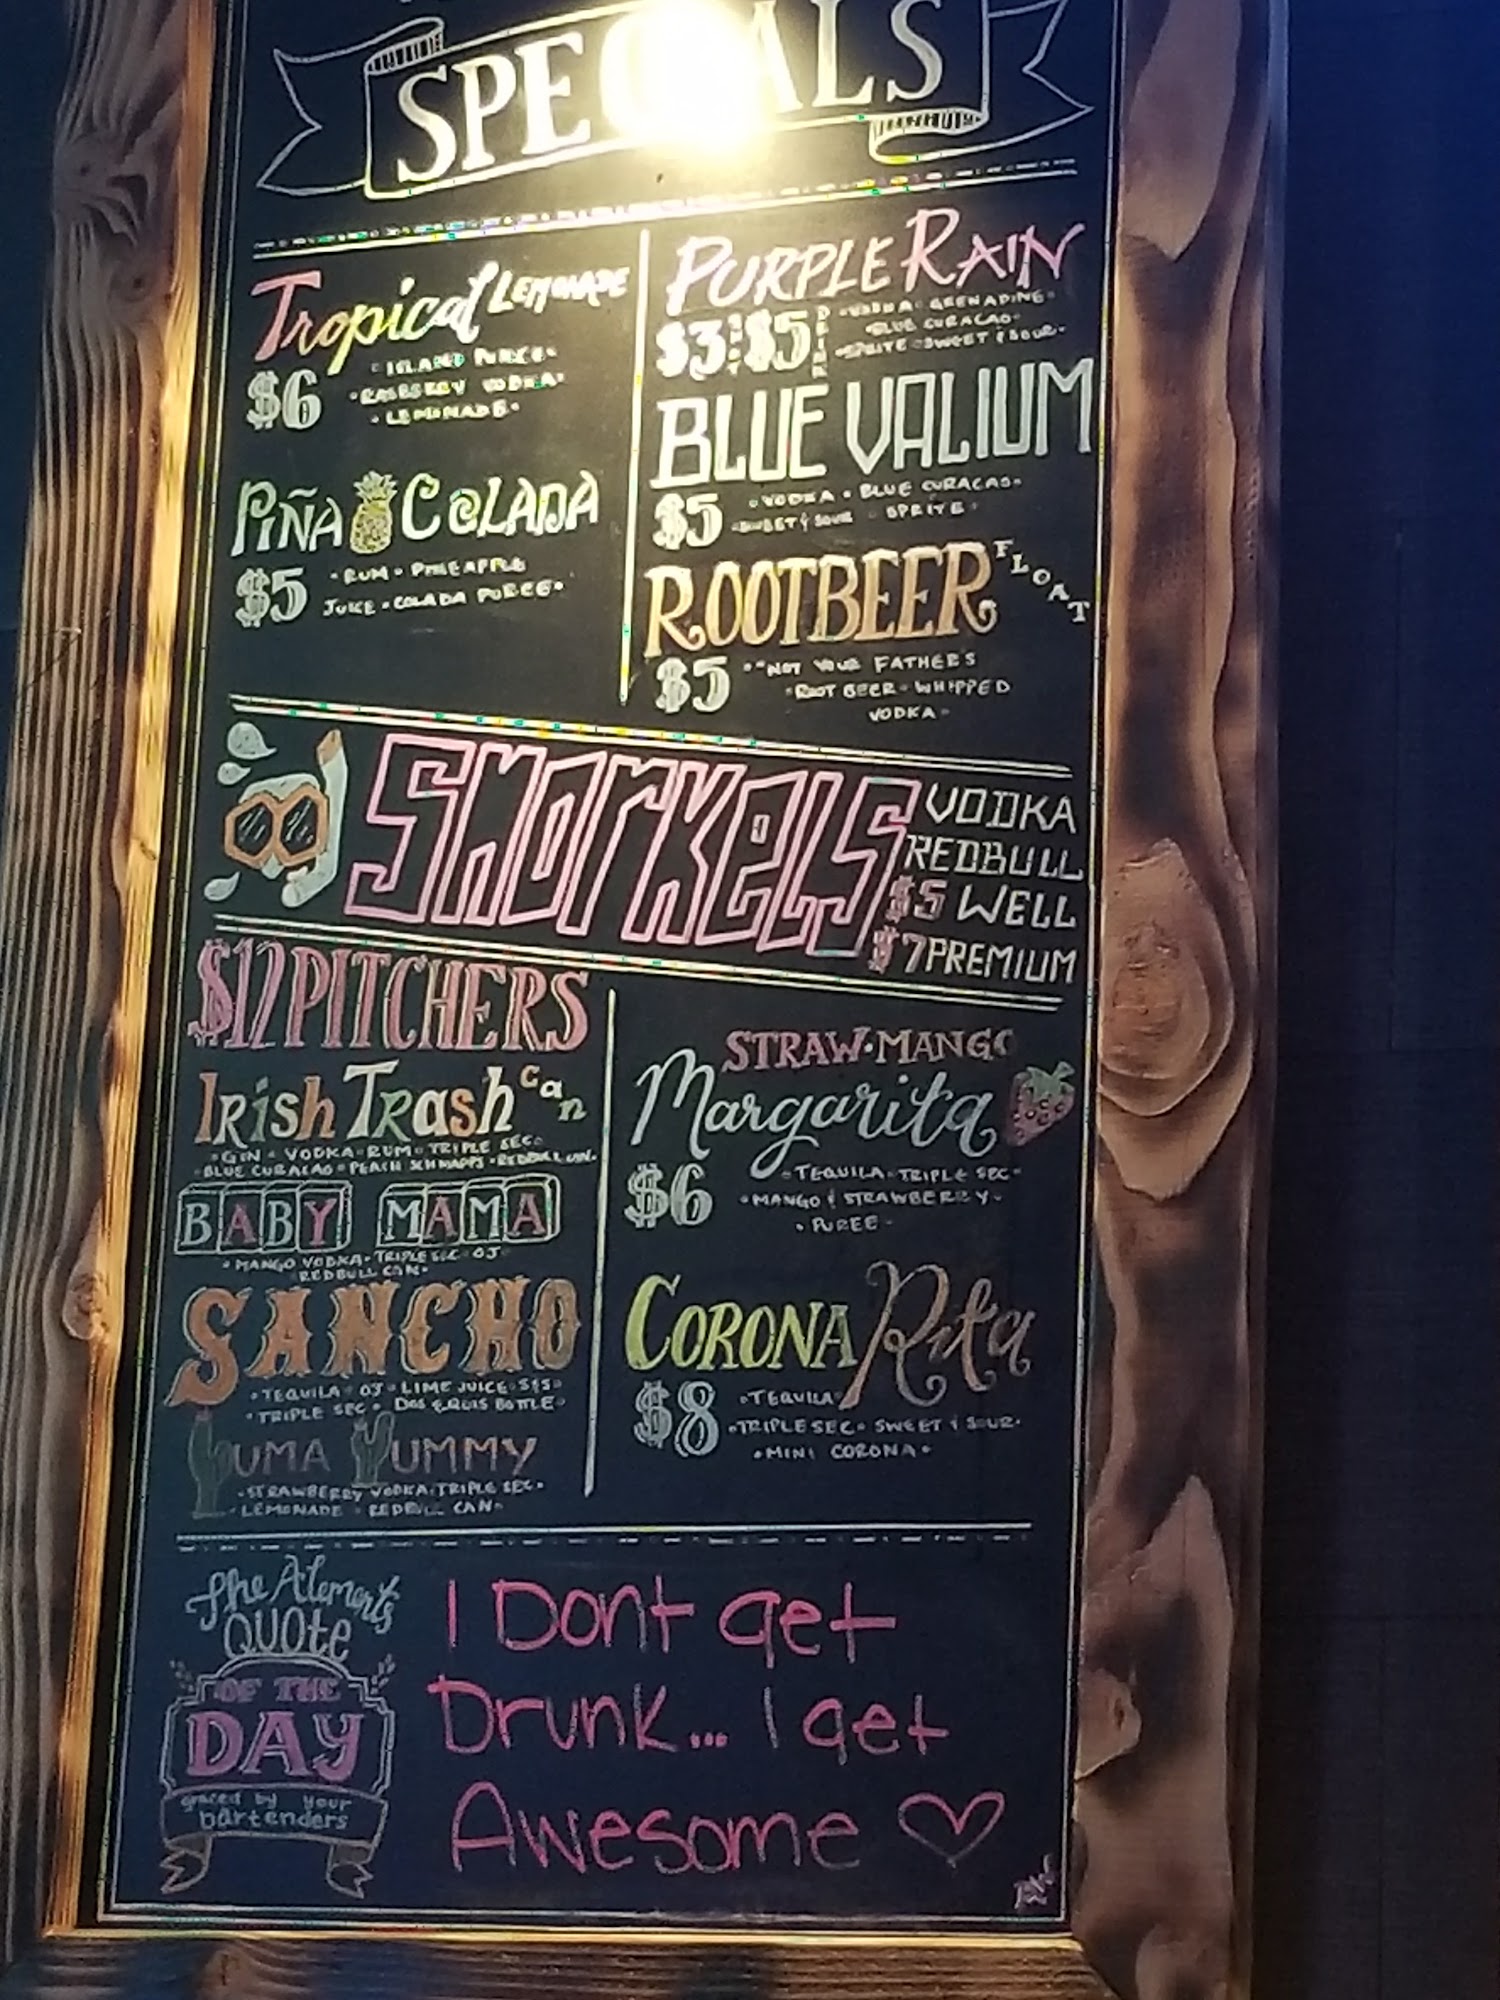 SPECIALS
Tropical LEMONADE
$6
• ISLAND PUREE •
• RASBERRY VODKA •
• LEMONADE •
PIÑA COLADA
$5
• RUM • PINEAPPLE
JUICE • COLADA PUREE •
PURPLE RAIN
$3 SHOT $5 DRINK
• VODKA • GRENADINE •
• BLUE CURACAO •
• SPRITE • SWEET & SOUR •
BLUE VALIUM
$5
• VODKA • BLUE CURACAO •
• SWEET & SOUR • SPRITE •
ROOTBEER FLOAT
$5
• "NOT YOUR FATHER'S
• ROOT BEER • WHIPPED
VODKA •
SNORKELS
VODKA
REDBULL
$5 WELL
$7 PREMIUM
$12 PITCHERS
IRish TRash can
• GIN • VODKA • RUM • TRIPLE SEC •
• BLUE CURACAO • PEACH SCHNAPPS • REDBULL CAN •
BABY MAMA
• MANGO VODKA • TRIPLE SEC • OJ •
REDBULL CAN •
SANCHO
• TEQUILA • OJ • LIME JUICE • S&S •
• TRIPLE SEC • DOS EQUIS BOTTLE •
YUMA YUMMY
• STRAWBERRY VODKA • TRIPLE SEC •
• LEMONADE • REDBULL CAN •
STRAW • MANGO
Margarita
$6
• TEQUILA • TRIPLE SEC •
• MANGO & STRAWBERRY •
• PUREE •
CORONA Rita
$8
• TEQUILA
• TRIPLE SEC • SWEET & SOUR •
• MINI CORONA •
The Alements
QUOte
OF THE
DAY
graced by your
bartenders
I Dont get
Drunk... I get
Awesome ♡